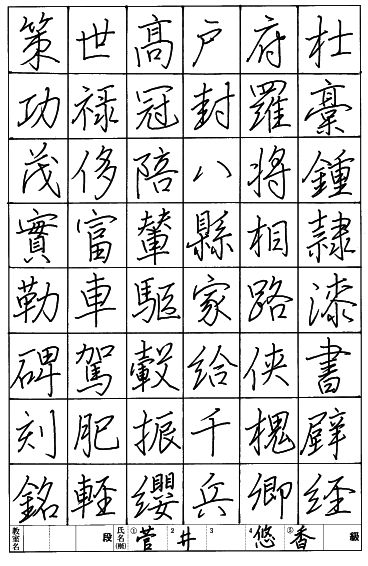 杜稾鍾隷漆書壁経
府羅将相路侠槐卿
戸封八縣家給千兵
髙冠陪輦驅轂振纓
世禄侈富車駕肥軽
策功茂實勒碑刻銘
教室名 段 氏名 ①菅 2井 3 4悠 ⑤香 級